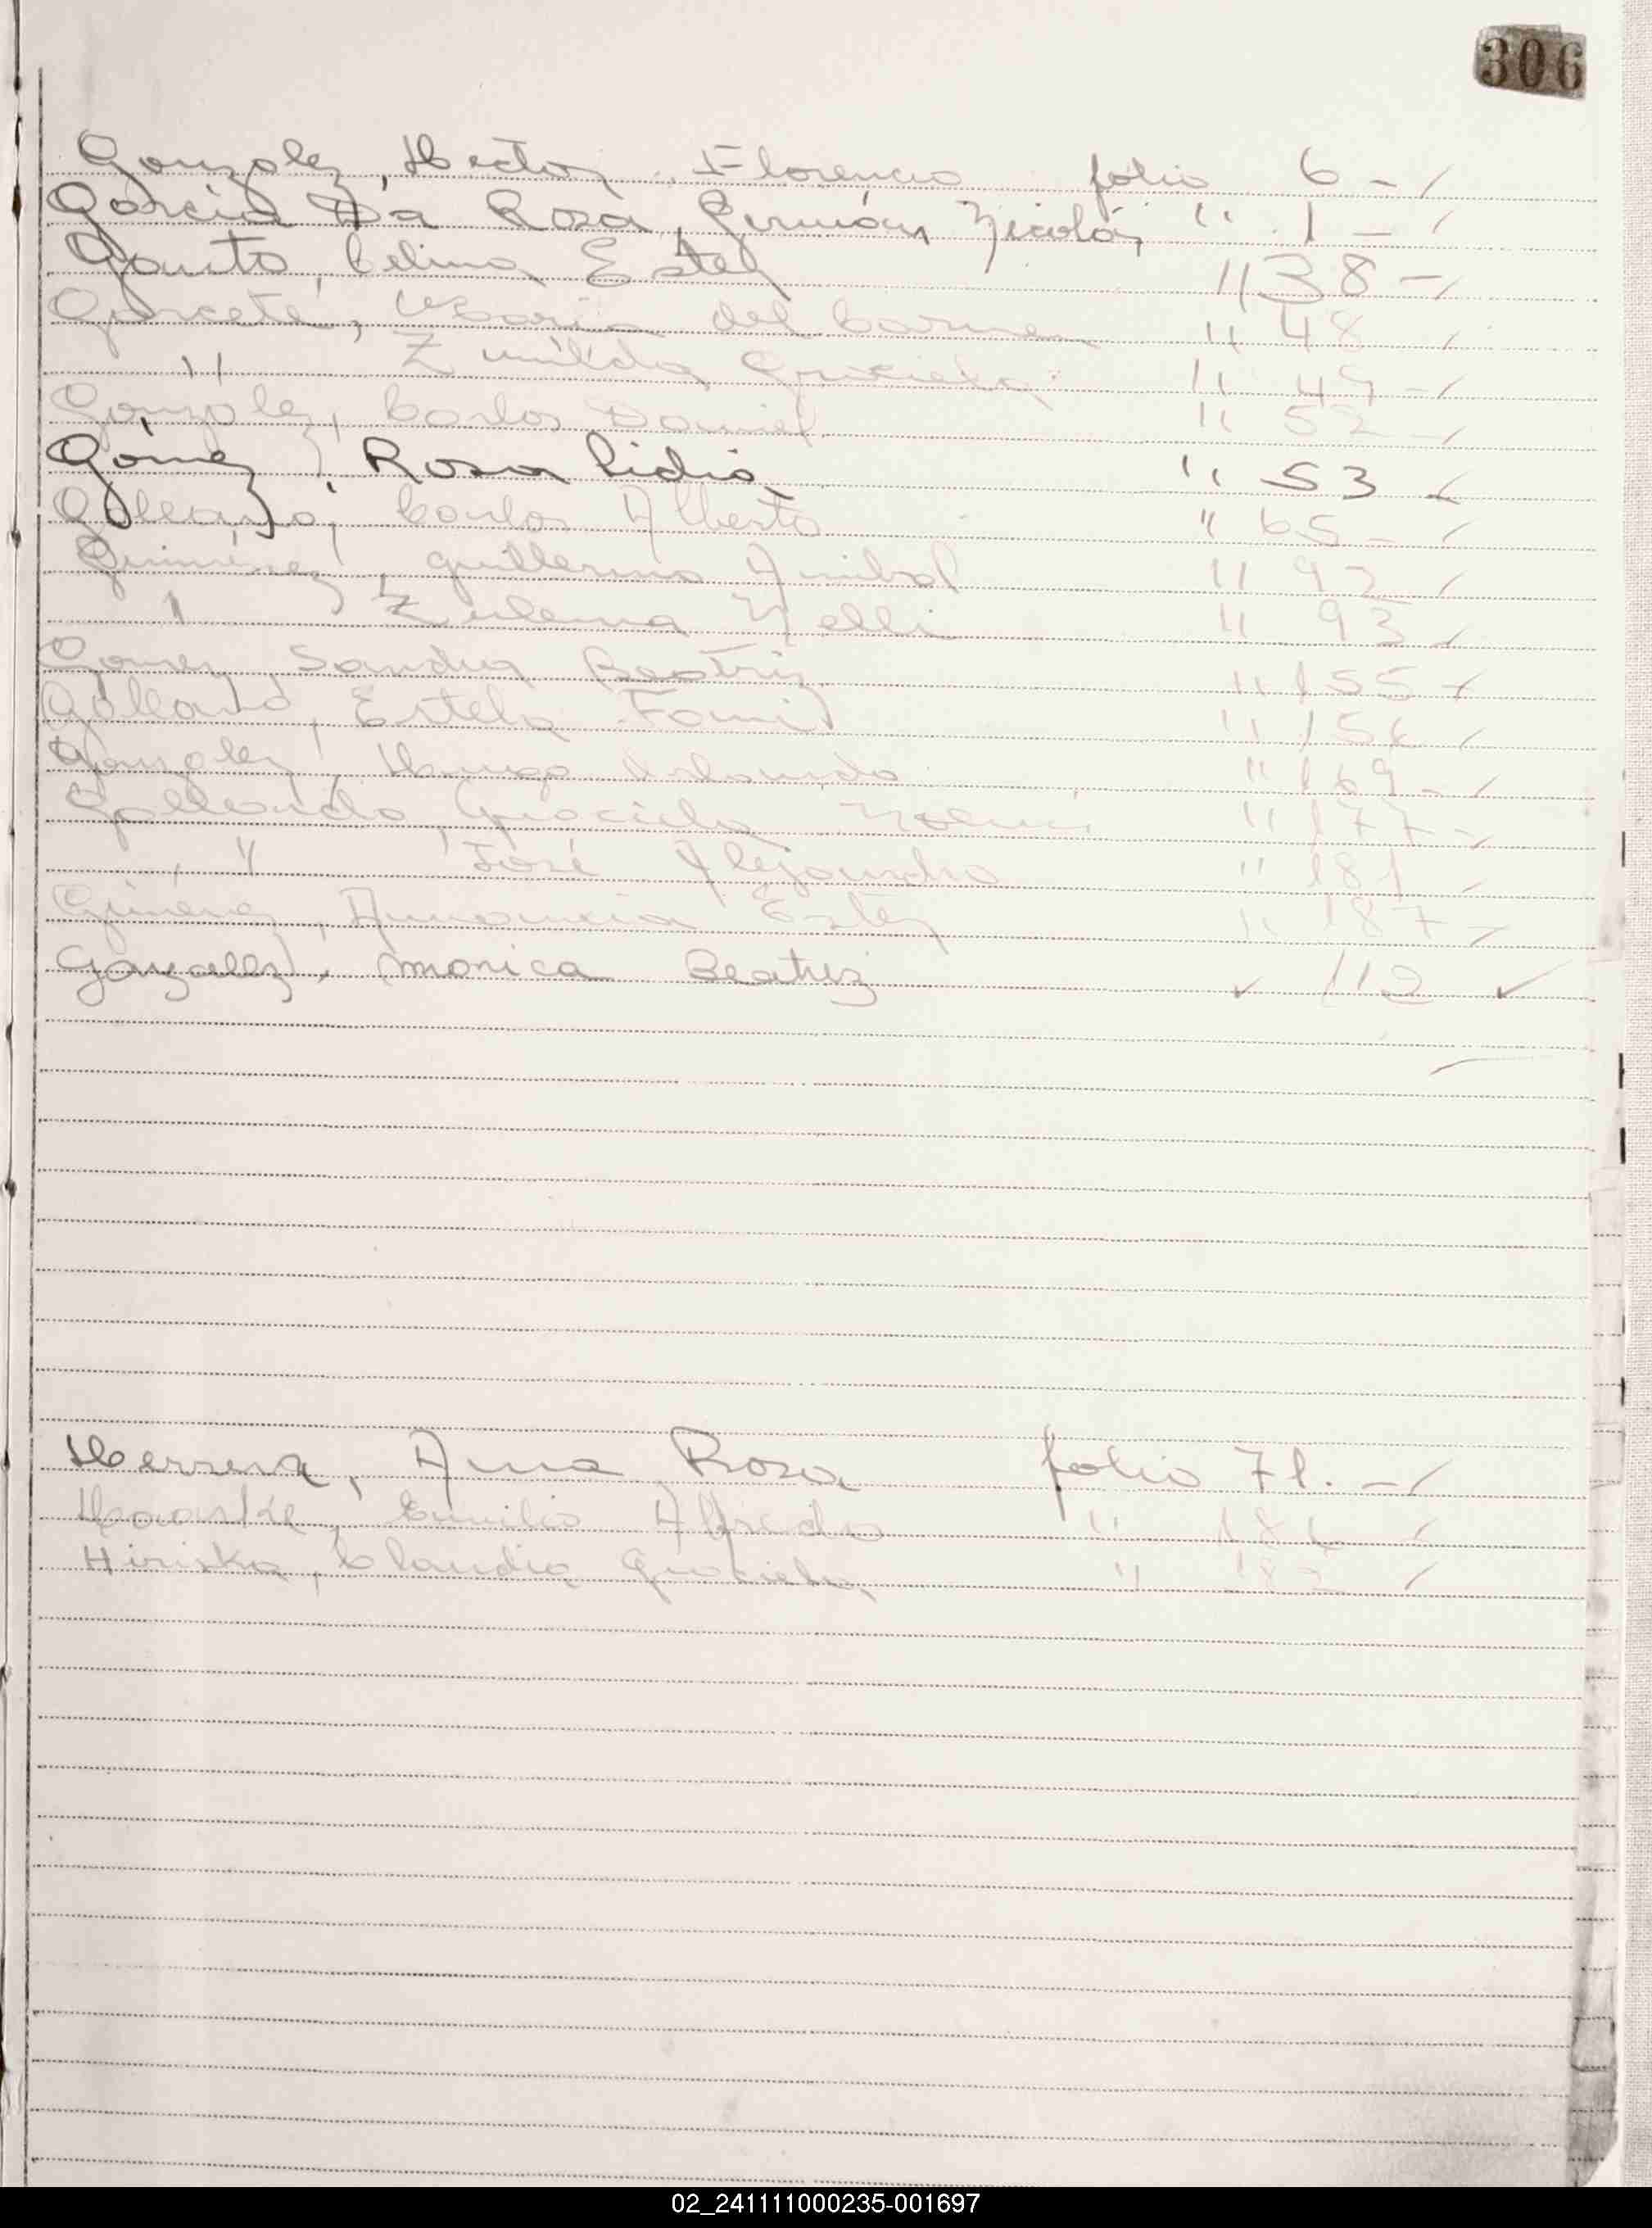 306
Gonzalez, Hector Florencio folio 6 -/
Garcia Da Rosa, Germán Nicolás " 1 -/
Gauto, Celina Ester " 38 -/
Garcete, Maria del Carmen " 48 /
" Zunilda Graciela " 49 -/
Gonzalez, Carlos Daniel " 52 -/
Gómez, Rosa Lidia " 53 /
Gallardo, Carlos Alberto " 65 - /
Gimenez, Guillermo Anibal " 92 /
" Zulema Nelli " 93 /
Gomez Sandra Beatriz " 155 /
Gallardo, Estela " 156 /
Gonzalez, Hugo " 169 - /
Graciela " 177 - /
" José Alejandro " 181 /
Gimenez, Ester " 187 /
Gonzalez, Monica Beatriz ✓ 112 ✓
Herrera, Ana Rosa folio 71. -/
Emilio Alfredo " /
Claudia Graciela " /
02_241111000235-001697